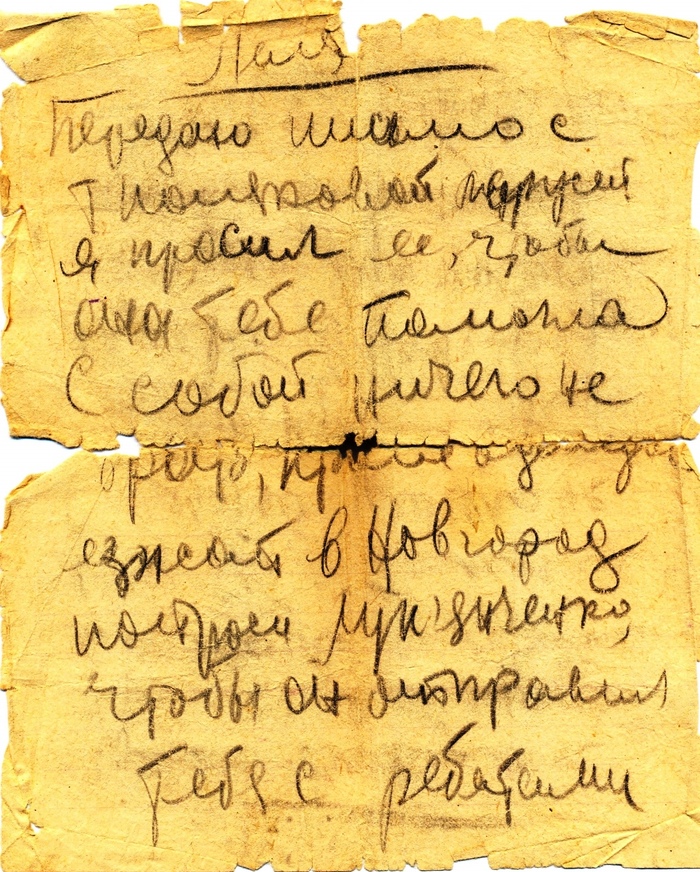 Передаю письмо с
я просил ее, чтобы
она тебе помогла
С собой ничего не
бери,
езжай в Новгород
попроси Лукьянченко,
чтобы он отправил
тебя с ребятами